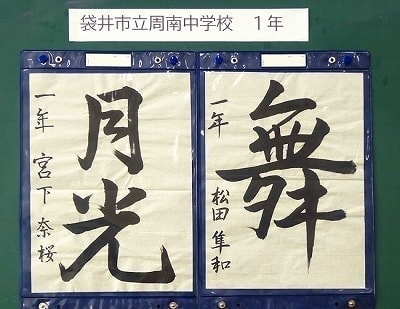 袋井市立周南中学校　１年
舞
一年　松田　隼和
月光
一年　宮下　奈桜